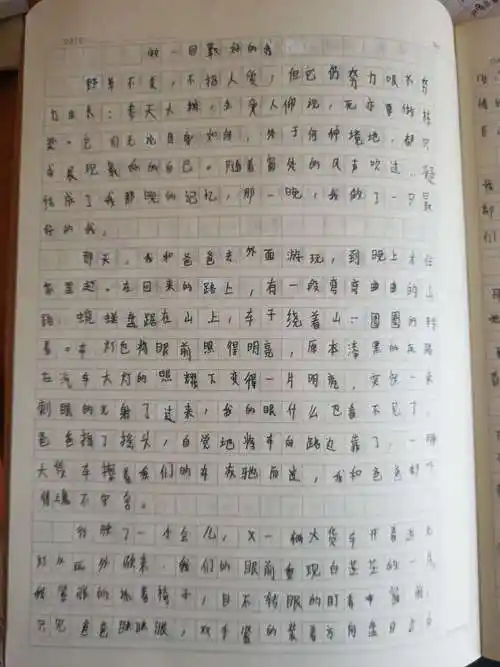 做一回最好的我
野草不美,不招人爱,但它仍努力吸水努
力生长;春天大树,去受人仰视,死亦要做栋
梁。它们无论自身如何,处于何种境地,都
成展现最好的自己。随着窗外的风声吹过,疑
结成了我那晚的记忆,那一晚,我做了一回最
好的我。
那天,我和爸爸去外面游玩,到晚上才往
家里赶。在回来的路上,有一段弯弯曲曲的山
路,蜿蜒盘踞在山上,车子绕着山一圈圈的转
着。车灯也将眼前照得明亮,原本漆黑的
在汽车大灯的照耀下变得一片明亮,突然一束
刺眼的光射了过来,我的眼什么也看不见了,
爸爸摇了摇头,自觉地将车向路边靠了,一辆
大货车擦着我们的车疾驰而过,我和爸爸都
得魂不守舍。
了一小会儿,又一辆大货车开着远光
灯从远处驶来,我们的眼前重现白茫茫的一片
我紧张的抓着椅子,目不转眼的盯着前
只见爸爸眯眯眼,双手紧的紧着方向盘